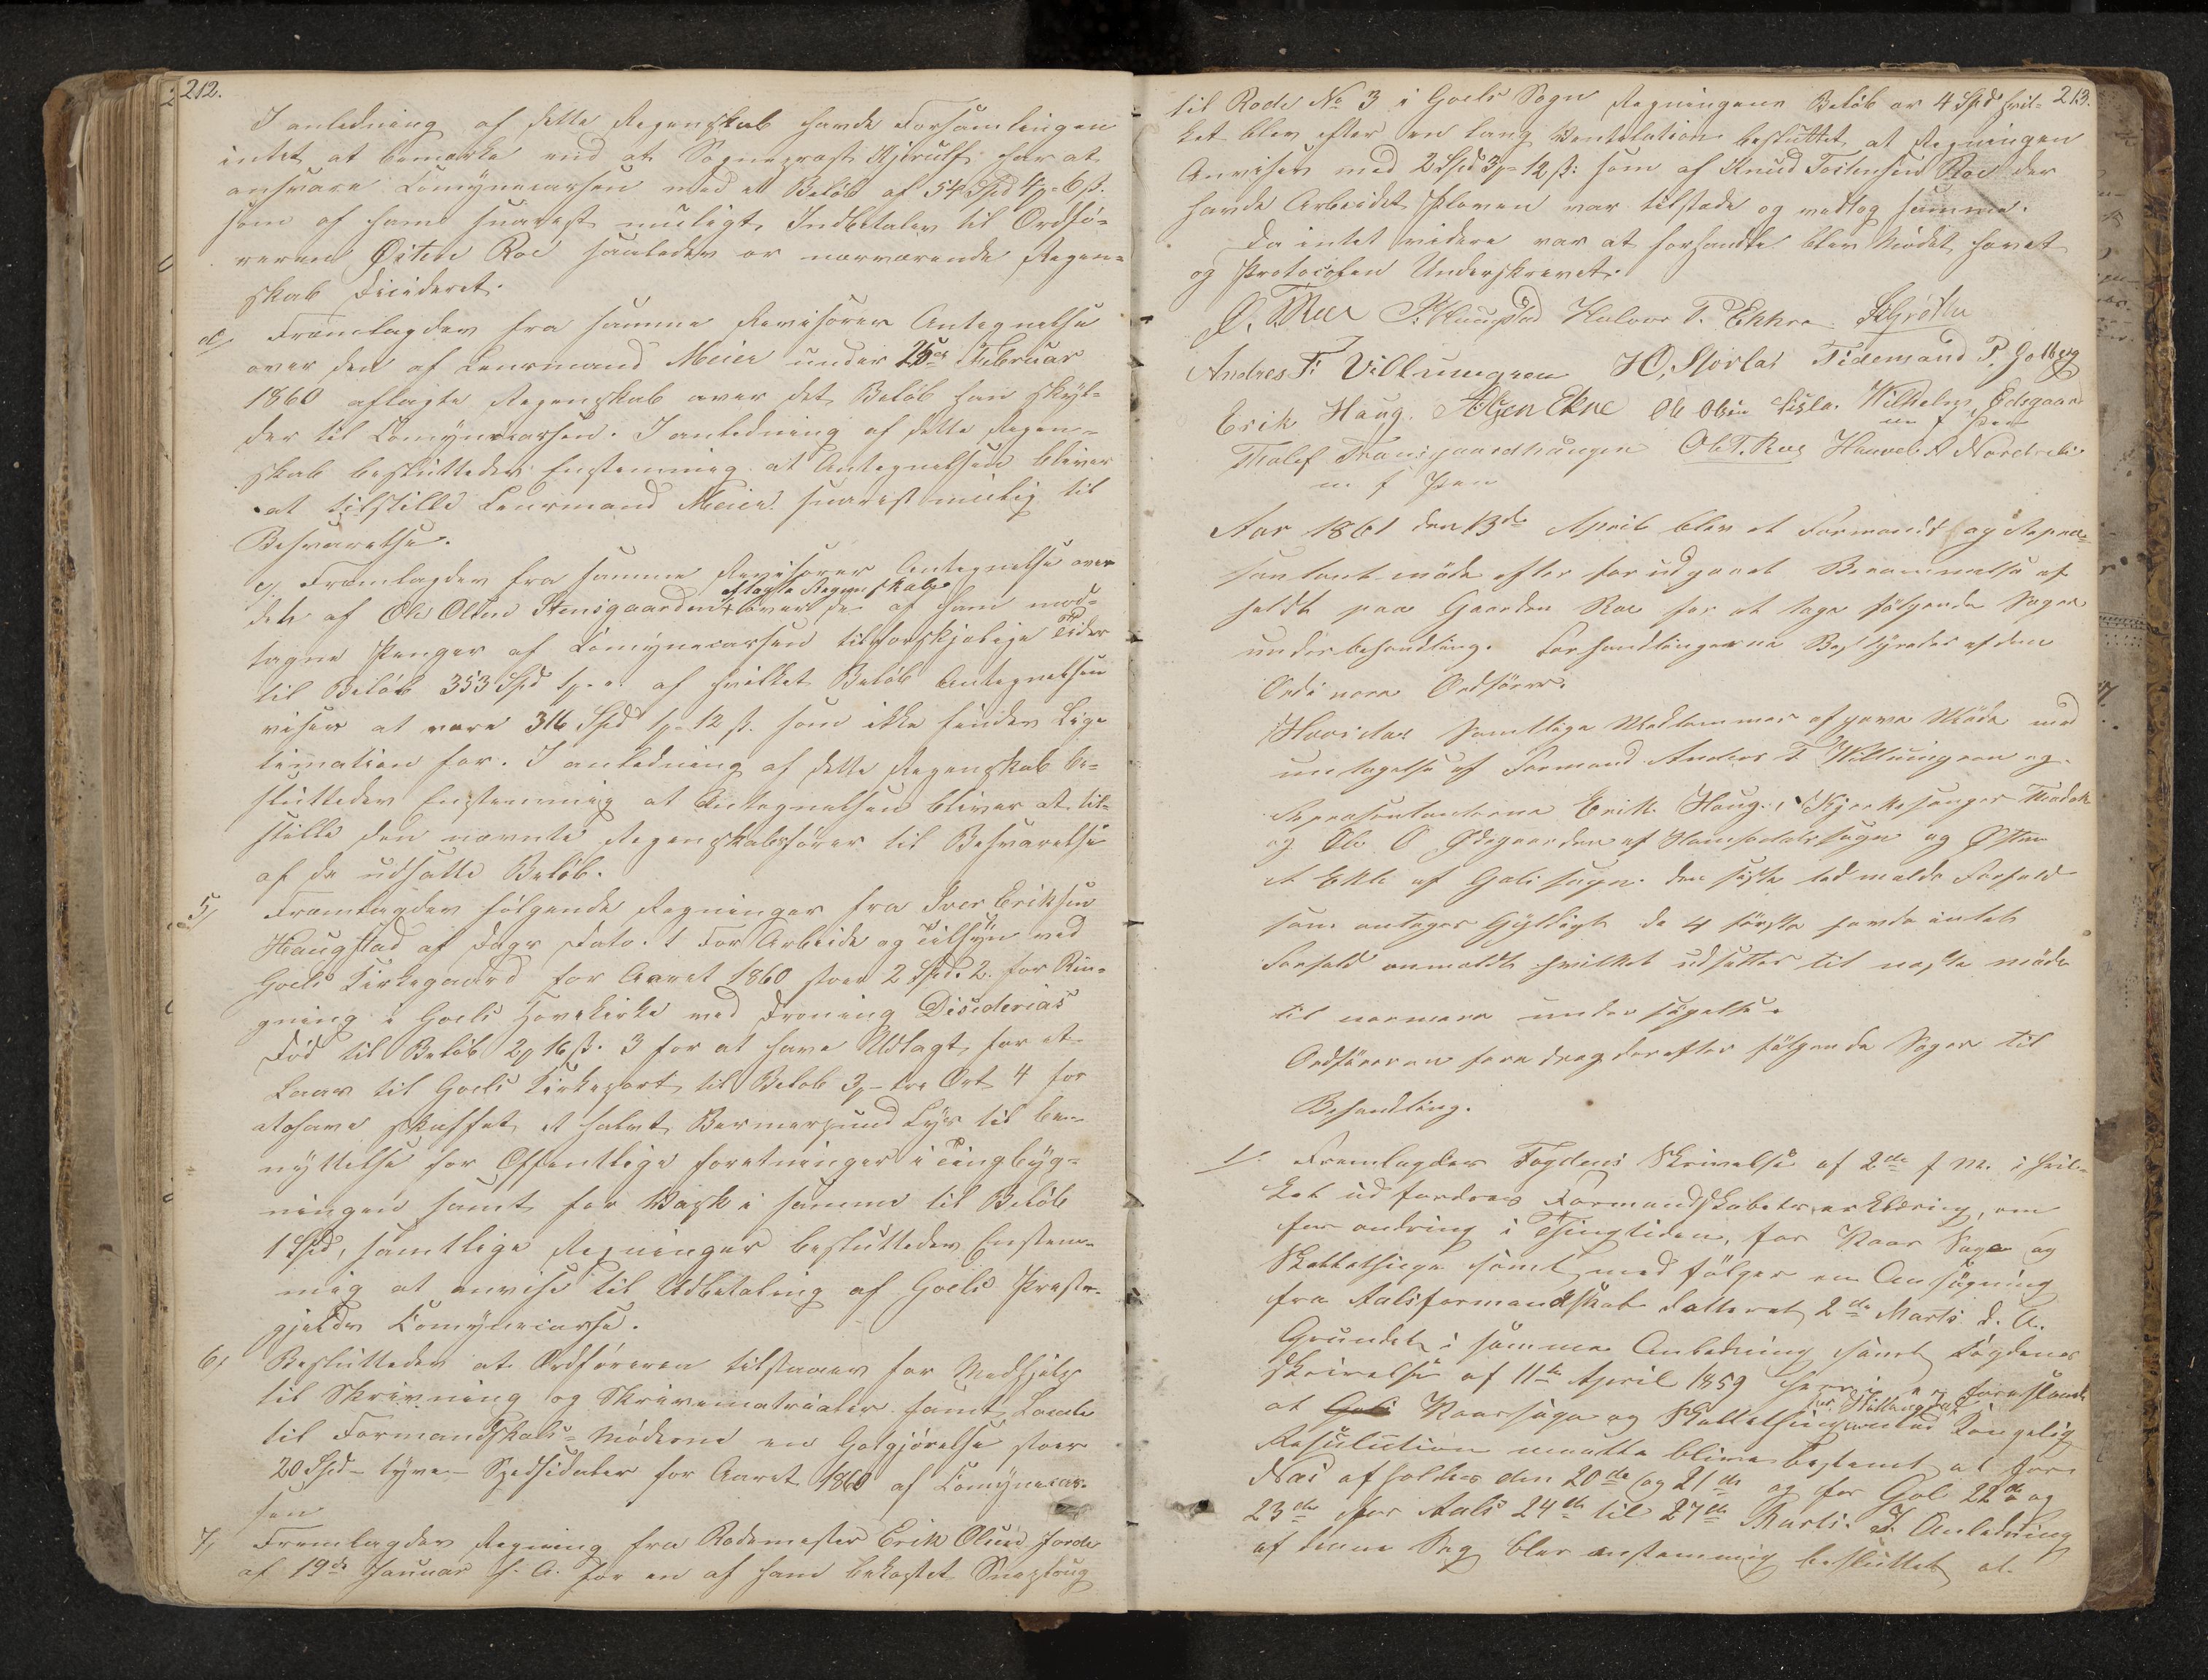 212.
I anledning af dette Regenskab havde Forsamlingen
intet at bemærke end at Sognepræst Kjerulf har at
ansvare Comynecassen med et Beløb af 54 Spd 4 - 6 ß.
som af ham snarest muligt, Indbetales til Ordfø-
reren Østen Roe saaledes er nærværende Regen-
skab Decideret.
d/ Fremlagdes fra samme Revisorer Antegnelse
over den af Lensmand Meier under 25de Februar
1860 aflagte Regenskab over det Beløb han skyl-
der til Comynecassen. I anledning af dette Regen-
skab besluttedes Enstemmig at Antegnelsen bliver
at tilstille Lensmand Meier snarest mulig til
Besvarelse.
e/ Fremlagdes fra samme Revisorer Antegnelse over
aflagte Regenskab
det af Ole Olsen Stensgaarden over de af ham mod-
tagne Penger af Comynecassen til forskjelige Tider
til Beløb 353 Spd af hvilket Beløb Antegnelsen
viser at være 316 Spd 1 - 12 ß. som ikke findes Lige
timation for. I anledning af dette Regenskab be-
sluttedes Enstemmig at Antegnelsen bliver at til-
stille den nævnte Regenskabsfører til Besvarelse
af de udsatte Beløb.
5/ Fremlagdes følgende Regninger fra Iver Eriksen
Haugstad af Dags Dato. 1 For Arbeide og Tilsyn ved
Goels Kirkegaard for Aaret 1860 stor 2 Spd. 2. for Rin-
gning i Goels Hovekirke ved Droning Desiderias
Død til Beløb 2 16 ß. 3 for at have Udlagt for et
Laas til Goels Kirkeport til Beløb 3 - tre Ort 4 for
athave skaffet et halvt Bismerpund Lys til be-
nyttelse for Offentlige foretninger i Tingbyg-
ningen samt for Vask i samme til Beløb
1 Spd, samtlige Regninger besluttedes Enstem-
mig at anvise til Udbetaling af Goels Præste-
gjelds Comynecasse.
6/ Besluttedes at Ordføreren tilstaaes for Medhjelp
til Skrivning og Skrivematrialer samt Locale
til Formandskabs-Møderne en Gotgjørelse stor
20 Spd - tyve - Spedsidaler for Aaret 1860 af Comynecas-
sen
7/ Fremlagdes Regning fra Rodemester Erik Olsen Jorde
af 19de Januar d. A. for en af ham bekostet Sneploug
213.
til Rode No 3 i Goels Sogn Regningens Beløb er 4 Spd hvil-
ket blev efter en lang Ventelation besluttet at Regningen
Anvises med 2 Spd 3 - 12 ß: som af Knud Tostensen Roe der
havde Arbeidet Ploven var tilstede og vedtog samme.
Da intet videre var at forhandle blev Mødet hævet
og Protocolen Underskrevet.
Ø. T. Roe Haugstad Halvor T. Ekkre Grøthe
Andres T. Villumgren H O, Storlas Tidemand P. Golberg
Erik Haug. Ole Olsen Wilhelm Ødegaard
m f Pen
Tholef Tranigaardhaugen Ole T. Roe Haavel A Nordreli
m f Pen
Aar 1861 den 13de April blev et Formands og Repræ-
sentant møde efter forudgaaet Berammelse af
holdt paa Gaarden Roe for at tage følgende Sager
under behandling. Forhandlingerne Bestyredes af den
Ordi nere Ordfører.
Hvoidat Samtlige Medlemmer afgave Møde med
undtagelse af Formand Anders T Willumgren og
Repræsentanterne Erik Haug, Kjerkesanger
og Ole O Ødegaarden af Hemsedals sogn og Østen
Ekle af Gols sogn. den siste lod melde Forfald
som antages Gyldigt de 4 første havde intet
Forfald anmeldt hvilket udsættes til neste møde
til nærmere undersøgelse.
Ordføreren foredrog derefter følgende Sager til
Behandling.
1/. Fremlagdes Fogdens Skrivelse af 2de f M. i hvil-
ket udfordres Formandskabets erklæring, om
forandring i Tingtiden, for Vaar Sage og
Skattetinge samt med følger en Ansøgning
fra Aalsformandskab datteret 2de Marts d. A.
Grundet i samme Anledning samt Fogdens
Skrivelse af 11te April 1859 foreslaaes
at Vaarsage og Skattething ved Kongelig
Resulution maatte blive bestemt at for
Næs afholdes den 20de og 21de og for Gol 22de og
23de for Aals 24de til 27de Marts. I Anledning
af denne Sag blev enstemmig besluttet at